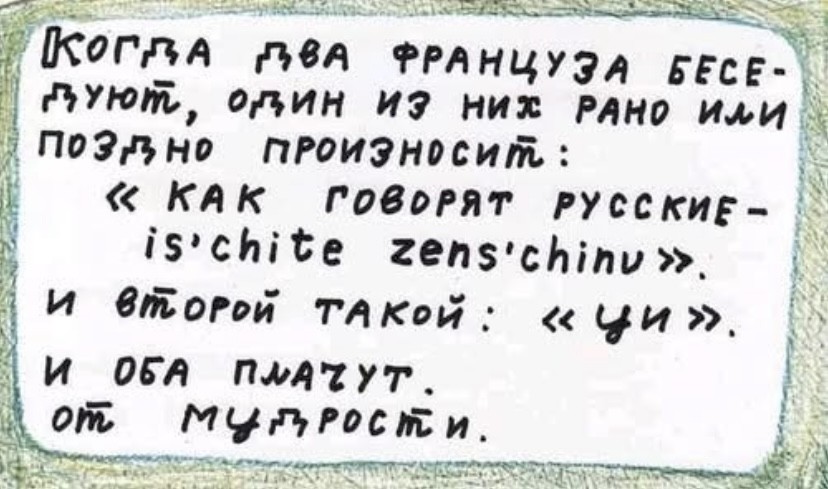 Когда два француза бесе-
дуют, один из них рано или
поздно произносит:
« как говорят русские-
is'chite zens'chinu».
и второй такой: « уи ».
и оба плачут.
от мудрости.